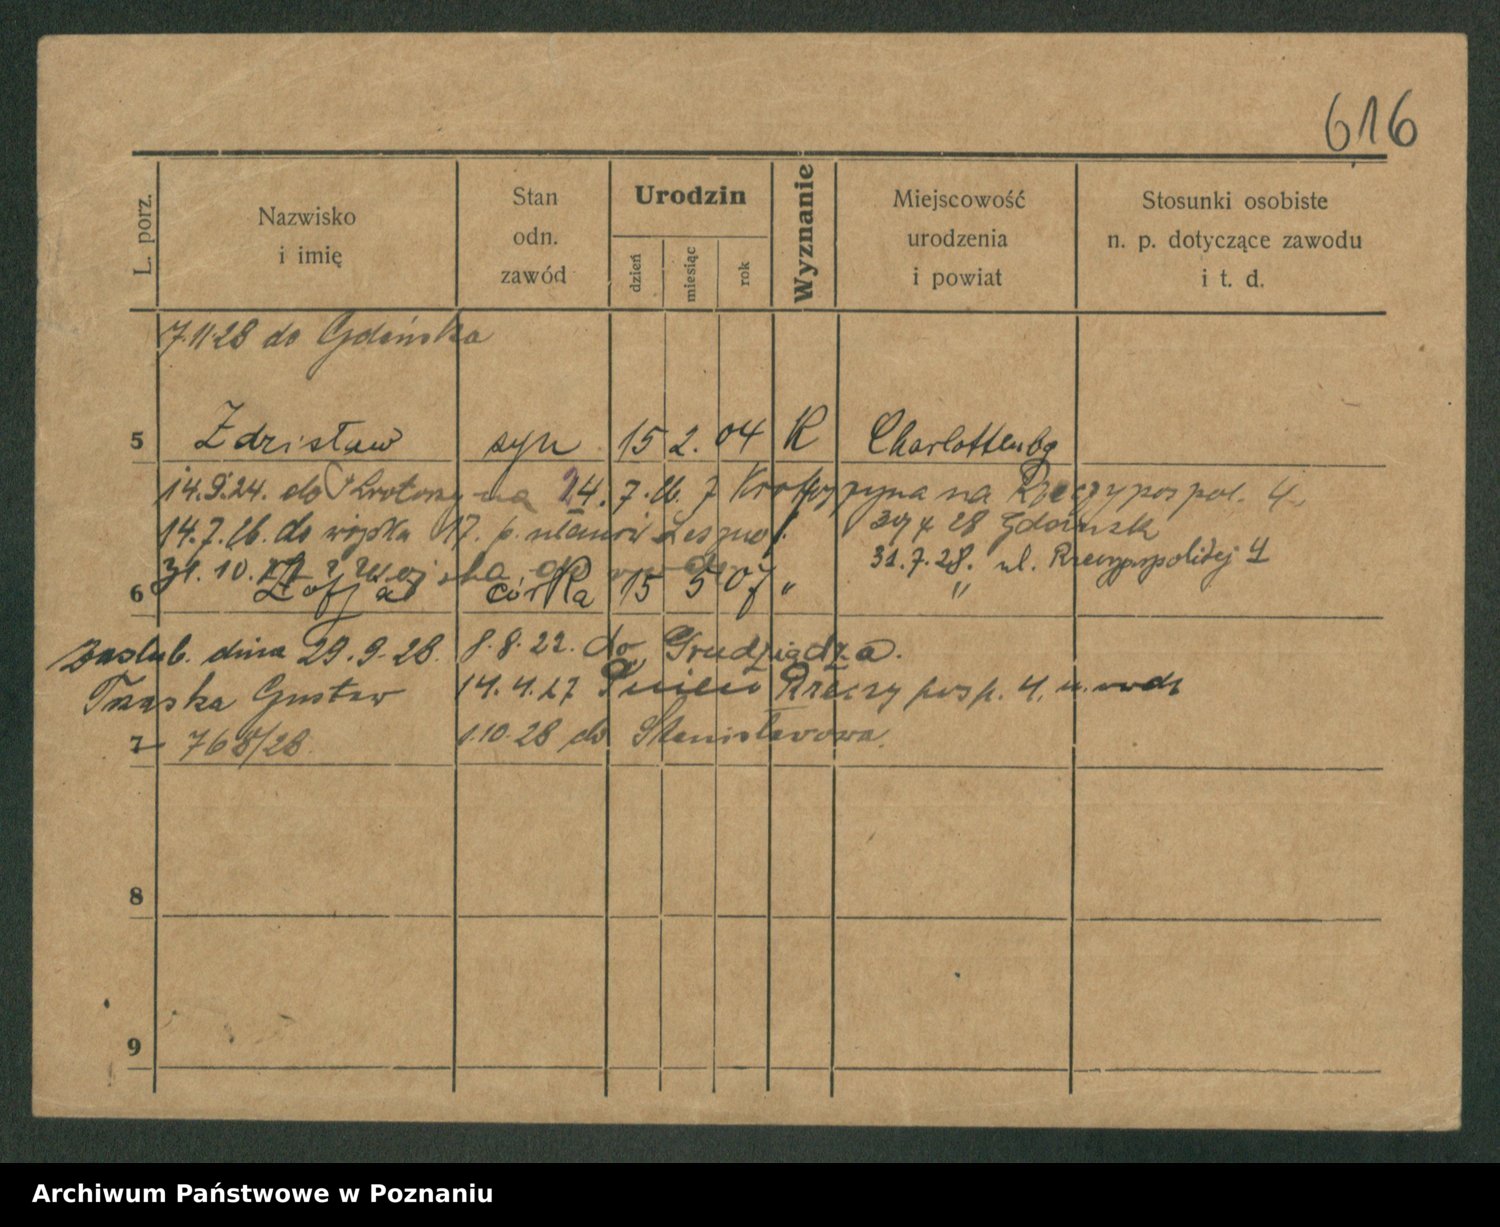 616
L. porz.
Nazwisko
i imię
Stan
odn.
zawód
Urodzin
dzień
miesiąc
rok
Wyznanie
Miejscowość
urodzenia
i powiat
Stosunki osobiste
n. p. dotyczące zawodu
i t. d.
7.11.28 do Gdańska
5 Zdzisław syn 15 2. 04 K Charlottenbg
14.9.24. do Krotosz na 24. 7. 26. z Krotoszyna na Rzeczypospol. 4
14.7.26. do wojska 17. p. ułanów Leszno
28 Gdańsk
31.10. z wojska
31.7.28. ul. Rzeczypospolitej 4
6 Zofja córka 15 5 07 " "
zaślub. dnia 29.9.28. 8.8.22. do Grudziądza.
Traska Gustaw 14.4.27 Rzeczyposp. 4.
7 768/28. 1.10.28 do Stanisławowa.
8
9
Archiwum Państwowe w Poznaniu